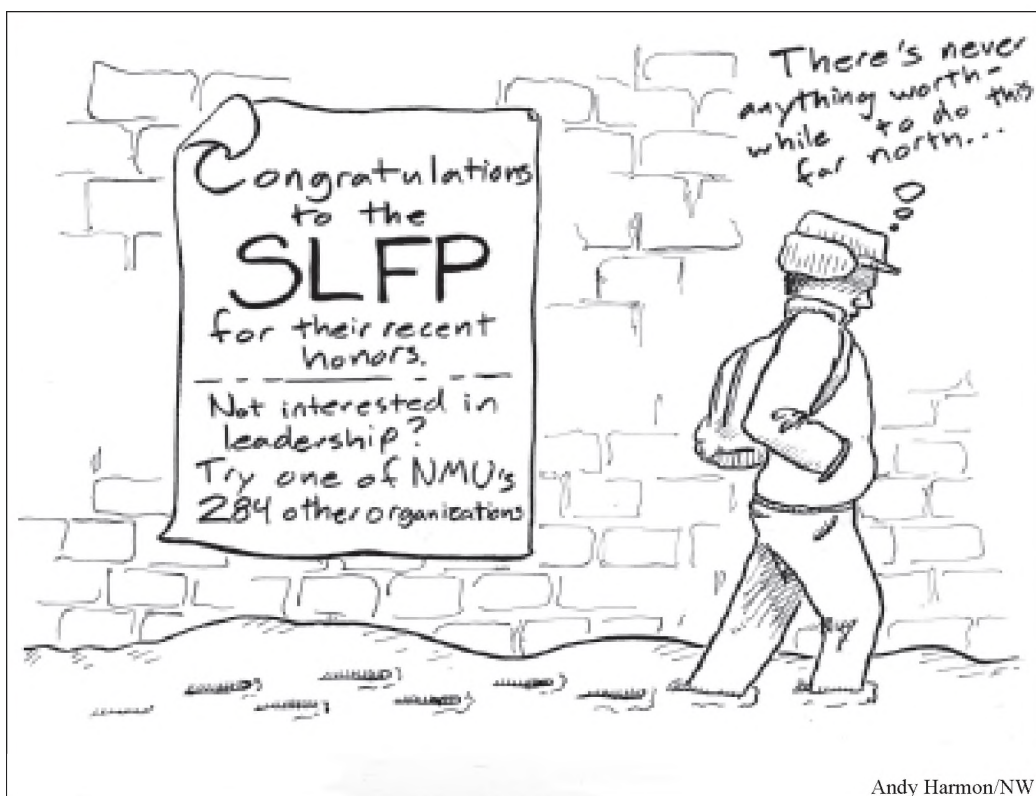 Congratulations
to the
SLFP
for their recent
honors.
Not interested in
leadership?
Try one of NMU's
284 other organizations
There's never
anything worth-
while to do this
far north...
Andy Harmon/NW